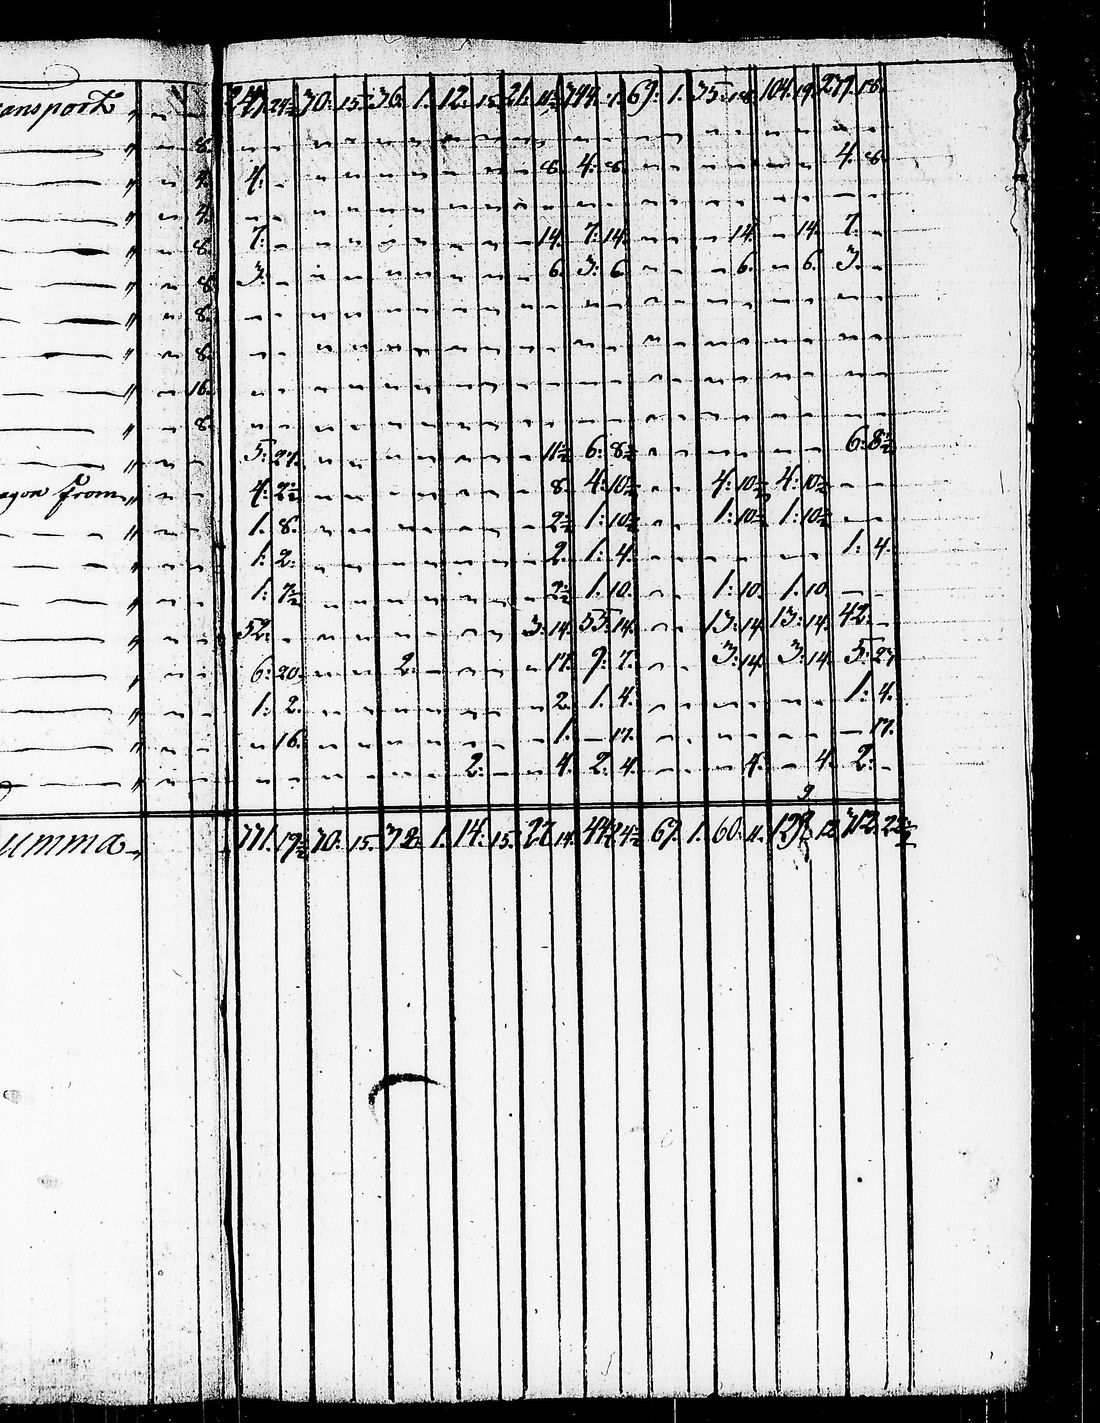 ansport " ~ ~ 24½ 30: 15. 36: 1. 12: 15. 21: 11½ 344: 1. 69: 1. 35: 18. 104: 19. 277: 18.
" ~ 8. ~ ~ ~ ~ ~ ~ ~ ~ ~ ~ ~ ~ ~ ~ ~ ~ ~ ~ ~ ~
" ~ 4. 4: - ~ ~ ~ ~ ~ ~ ~ 8. 4: 8. ~ ~ ~ ~ ~ ~ 4: 8.
" ~ 4. ~ ~ ~ ~ ~ ~ ~ ~ ~ ~ ~ ~ ~ ~ ~ ~ ~ ~ ~ ~
" ~ 8. 7: - ~ ~ ~ ~ ~ ~ ~ 14. 7: 14. ~ ~ ~ 14. ~ 14. 7: -
" ~ 8. 3: - ~ ~ ~ ~ ~ ~ ~ 6. 3: 6. ~ ~ ~ 6. ~ 6. 3: -
" ~ 8. ~ ~ ~ ~ ~ ~ ~ ~ ~ ~ ~ ~ ~ ~ ~ ~ ~ ~ ~ ~
" ~ 8. ~ ~ ~ ~ ~ ~ ~ ~ ~ ~ ~ ~ ~ ~ ~ ~ ~ ~ ~ ~
" ~ 16. ~ ~ ~ ~ ~ ~ ~ ~ ~ ~ ~ ~ ~ ~ ~ ~ ~ ~ ~ ~
" ~ 8. ~ ~ ~ ~ ~ ~ ~ ~ ~ ~ ~ ~ ~ ~ ~ ~ ~ ~ ~ ~
" ~ - 5: 27. ~ ~ ~ ~ ~ ~ ~ 11½ 6: 8½ ~ ~ ~ ~ ~ ~ 6: 8½
agon from " ~ - 4: 2½ ~ ~ ~ ~ ~ ~ ~ 8. 4: 10½ ~ ~ 4: 10½ 4: 10½ ~ ~
" ~ - 1. 8. ~ ~ ~ ~ ~ ~ ~ 2½ 1: 10½ ~ ~ 1: 10½ 1: 10½ ~ ~
" ~ - 1: 2. ~ ~ ~ ~ ~ ~ ~ 2. 1: 4. ~ ~ ~ ~ ~ ~ 1: 4.
" ~ - 1: 7½ ~ ~ ~ ~ ~ ~ ~ 2½ 1. 10. ~ ~ 1: 10. 1: 10. ~ ~
" ~ - 52: - ~ ~ ~ ~ ~ ~ 3: 14. 55: 14. ~ ~ 13: 14. 13: 14. 42: -
" ~ - 6: 20. ~ ~ 2: - ~ ~ ~ 17. 9: 7. ~ ~ 3: 14. 3: 14. 5: 23
" ~ - 1: 2. ~ ~ ~ ~ ~ ~ ~ 2. 1. 4. ~ ~ ~ ~ ~ ~ 1: 4.
" ~ - ~ 16. ~ ~ ~ ~ ~ ~ ~ 1. - 17. ~ ~ ~ ~ ~ ~ - 17.
" ~ - ~ ~ ~ ~ ~ ~ 2: - ~ 4. 2: 4. ~ ~ ~ 4. - 4. 2: -
umma. 19½ 30: 15. 38: 1. 14: 15. 27: 14. 4½ 69: 1. 60: 11. 12. 22½